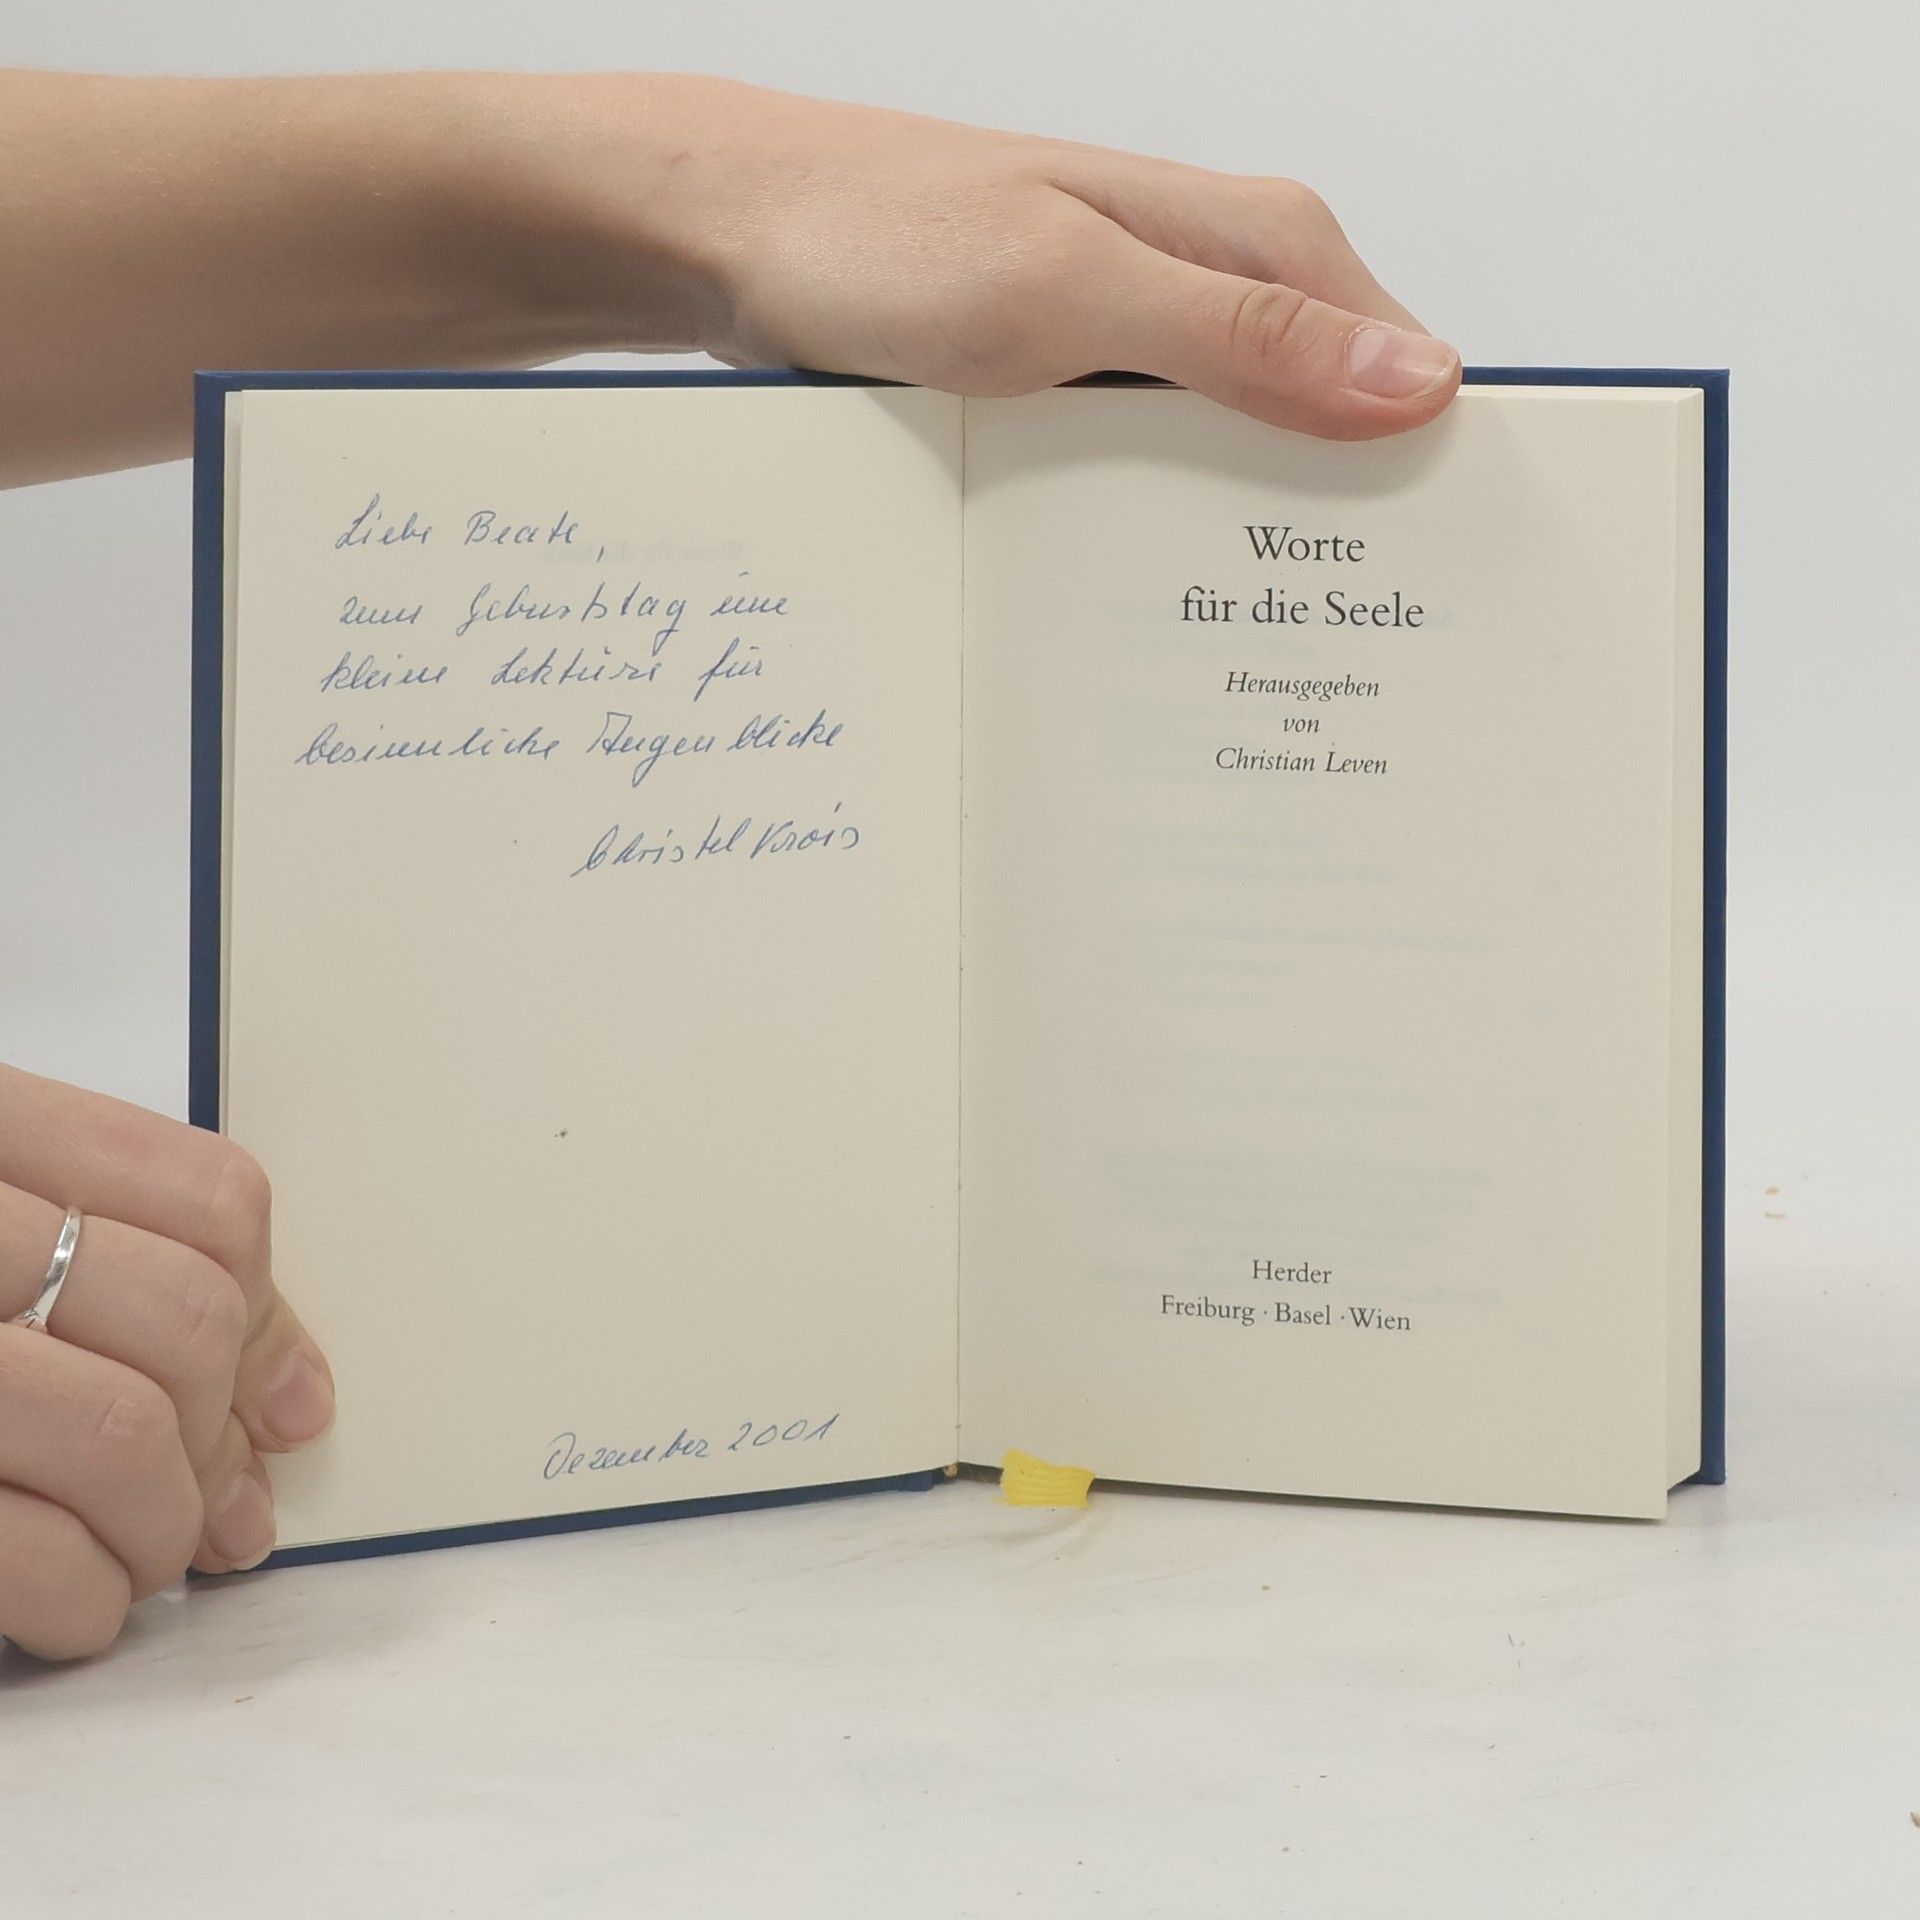 Liebe Beate,
zum Geburtstag eine
kleine Lektüre für
besinnliche Augenblicke
Christel Krois
Dezember 2001
Worte
für die Seele
Herausgegeben
von
Christian Leven
Herder
Freiburg · Basel · Wien